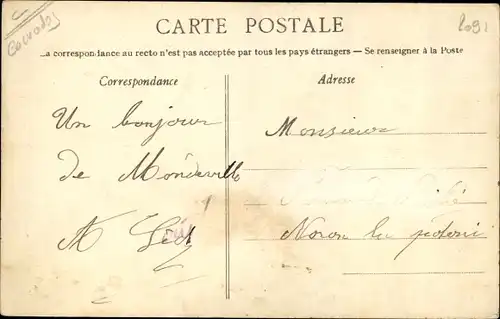 Calvados
2091
CARTE POSTALE
La correspondance au recto n'est pas acceptée par tous les pays étrangers — Se renseigner à la Poste
Correspondance
Adresse
Un bonjour
de Mondeville
Monsieur
Noron la poterie